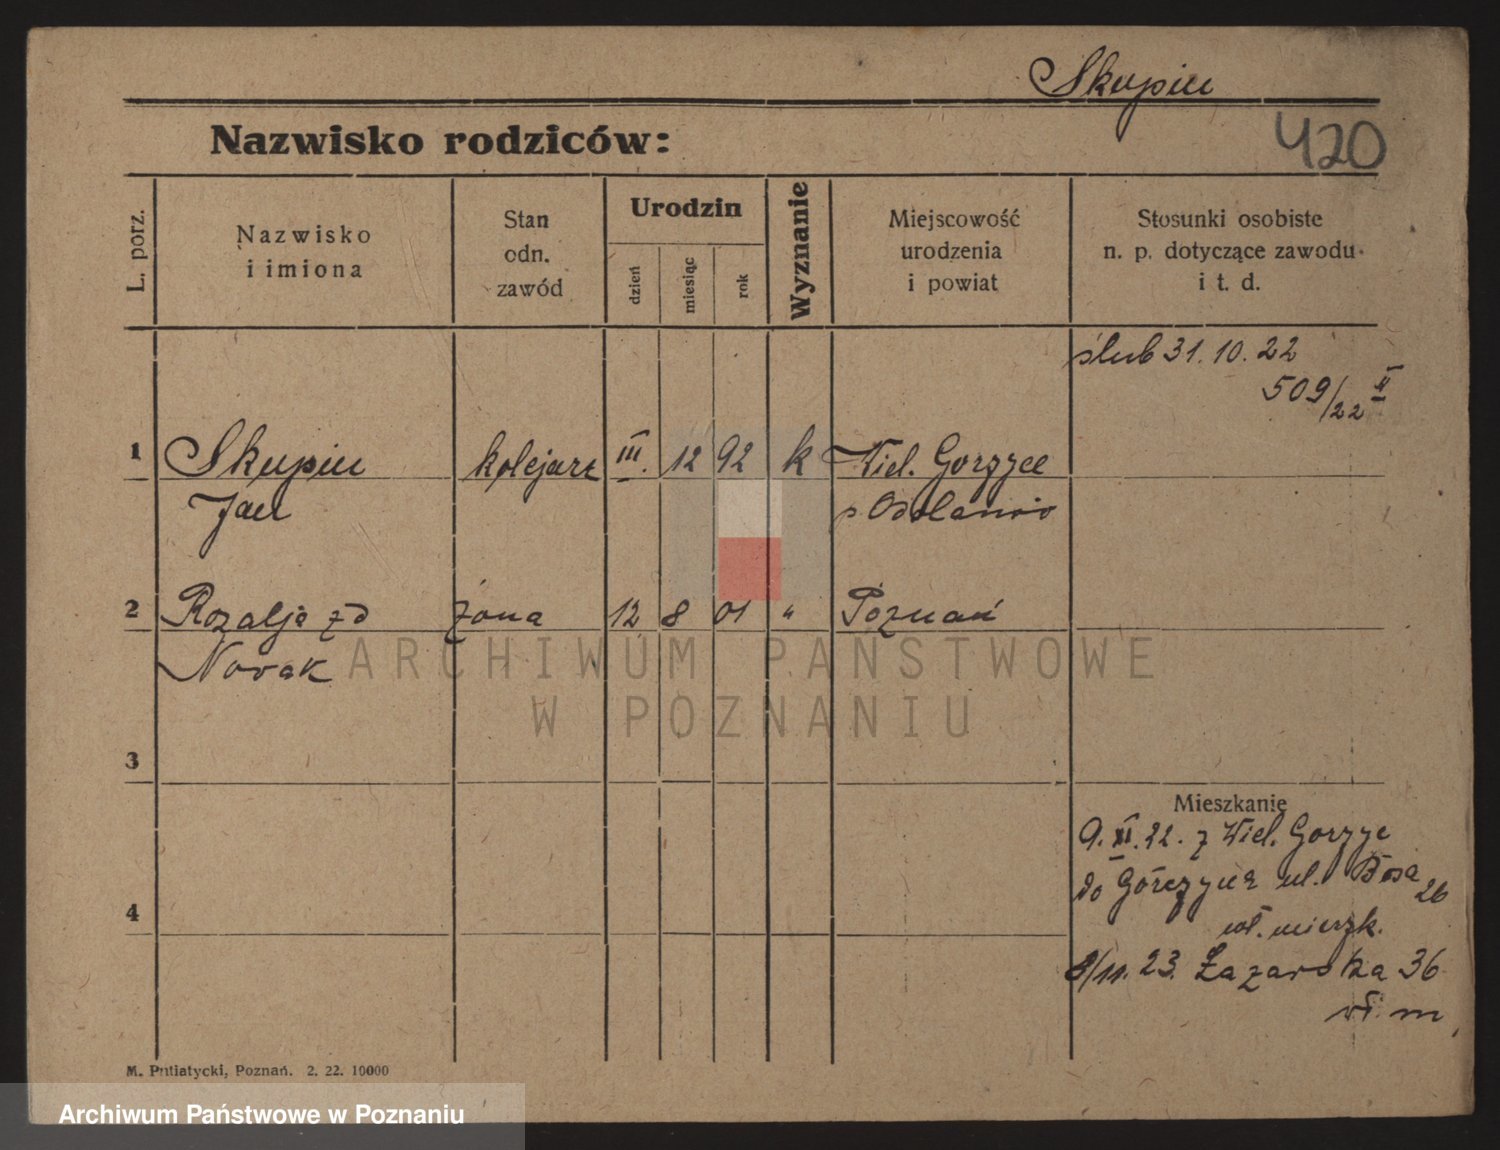 Skupin
420
Nazwisko rodziców:
L. porz.
Nazwisko
i imiona
Stan
odn.
zawód
Urodzin
dzień
miesiąc
rok
Wyznanie
Miejscowość
urodzenia
i powiat
Stosunki osobiste
n. p. dotyczące zawodu
i t. d.
ślub 31. 10. 22
509/22 II
1 Skupin kolejarz III. 12 92 k Wiel. Gorzyce
Jan p Odolanów
2 Rozalja zd żona 12 8 01 " Poznań
Nowak
3
Mieszkanie
9. XI. 22. z Wiel. Gorzyc
do Górczyna ul. Bosa 26
wł. mieszk.
4
8/11. 23. Łazarska 36
wł. m
M. Putiatycki, Poznań. 2. 22. 10000
ARCHIWUM PAŃSTWOWE
W POZNANIU
Archiwum Państwowe w Poznaniu